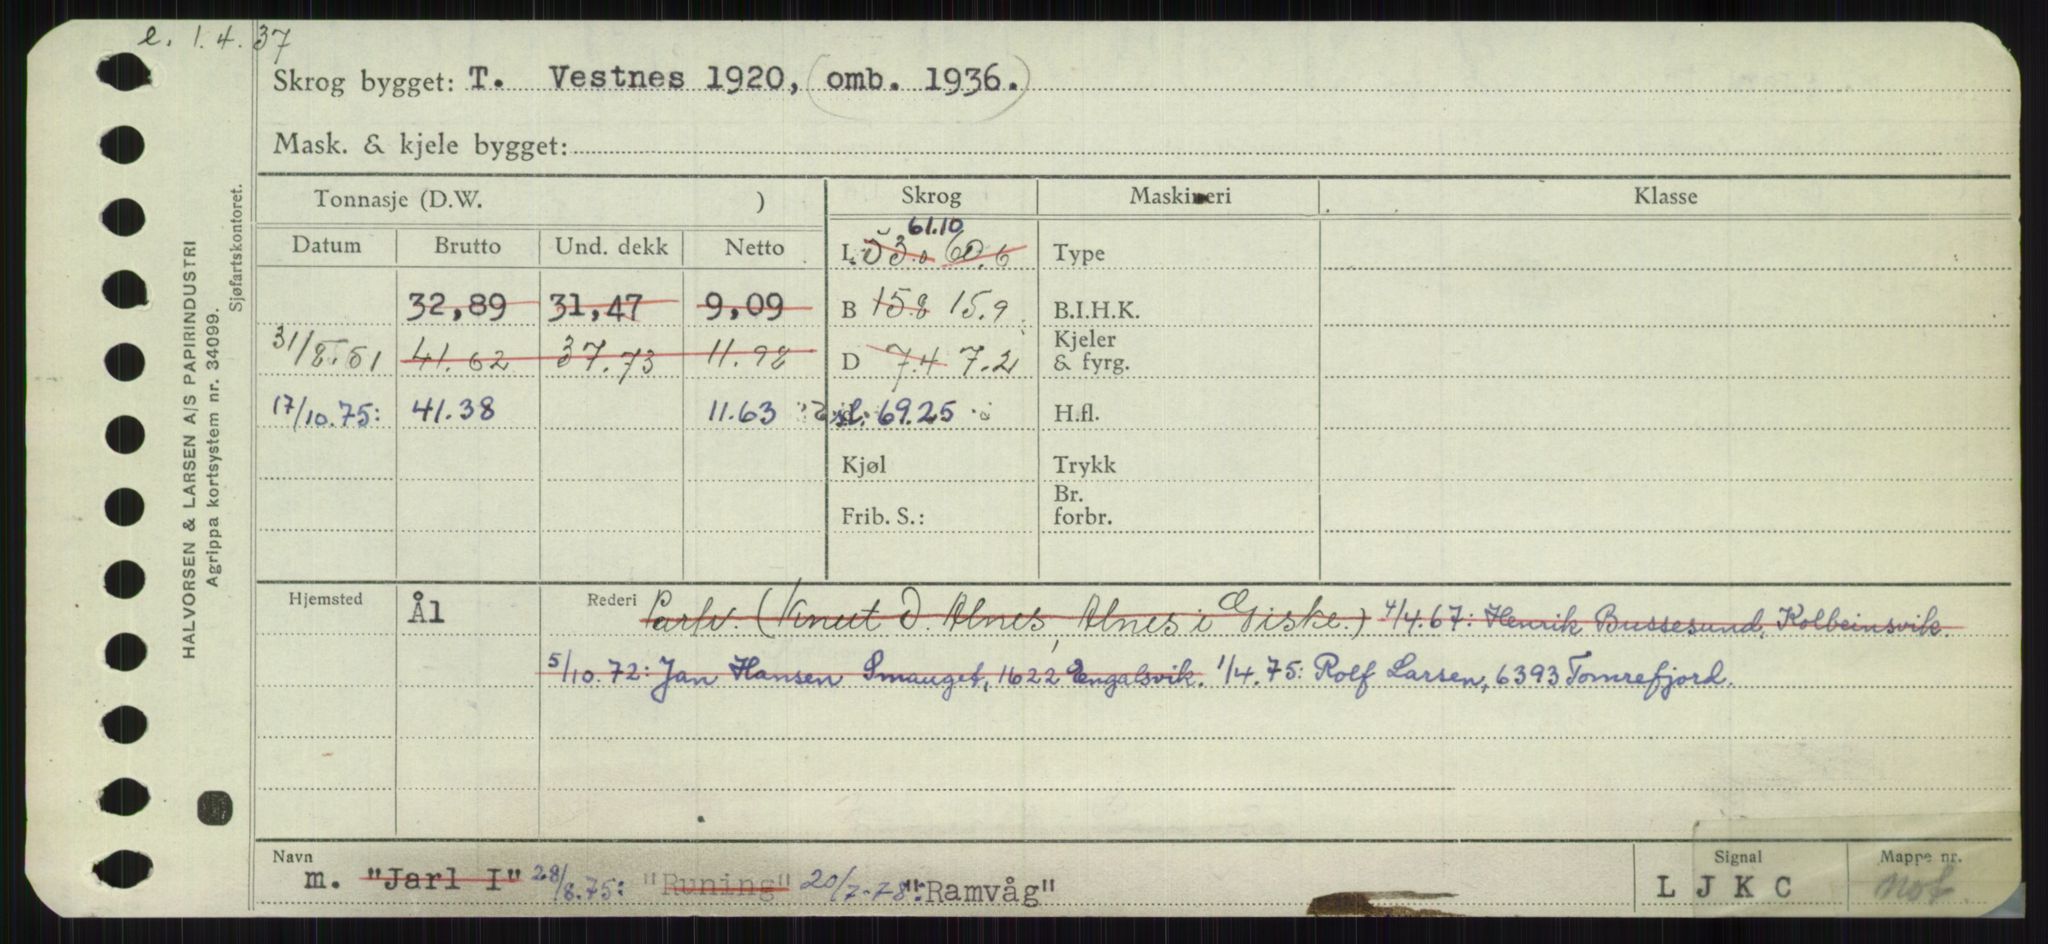 e. 1.4.37
Skrog bygget: T. Vestnes 1920, (omb. 1936.)
Mask. & kjele bygget:
HALVORSEN & LARSEN A/S PAPIRINDUSTRI
Agrippa kortsystem nr. 34099.
Sjøfartskontoret.
Tonnasje (D.W. ) Skrog Maskineri Klasse
61.10
Datum Brutto Und. dekk Netto L. 53.0 60.6 Type
32,89 31,47 9,09 B 15.8 15.9 B.I.H.K.
31/8.51 41.62 37.73 11.98 D 7.4 7.2 Kjeler & fyrg.
17/10.75: 41.38 11.63 sl: 69.25 H.fl.
Kjøl Trykk
Frib. S.: Br. forbr.
Hjemsted Ål Rederi Partr. (Knut O. Alnes, Alnes i Giske.) 4/4.67: Henrik Bussesund, Kolbeinsvik.
5/10.72: Jan Hansen Smauget, 1622 Engalsvik. 1/4.75: Rolf Larsen, 6393 Tomrefjord.
Navn Signal Mappe nr.
m. "Jarl I" 28/8.75: "Runing" 20/7-78: "Ramvåg" L J K C mot.